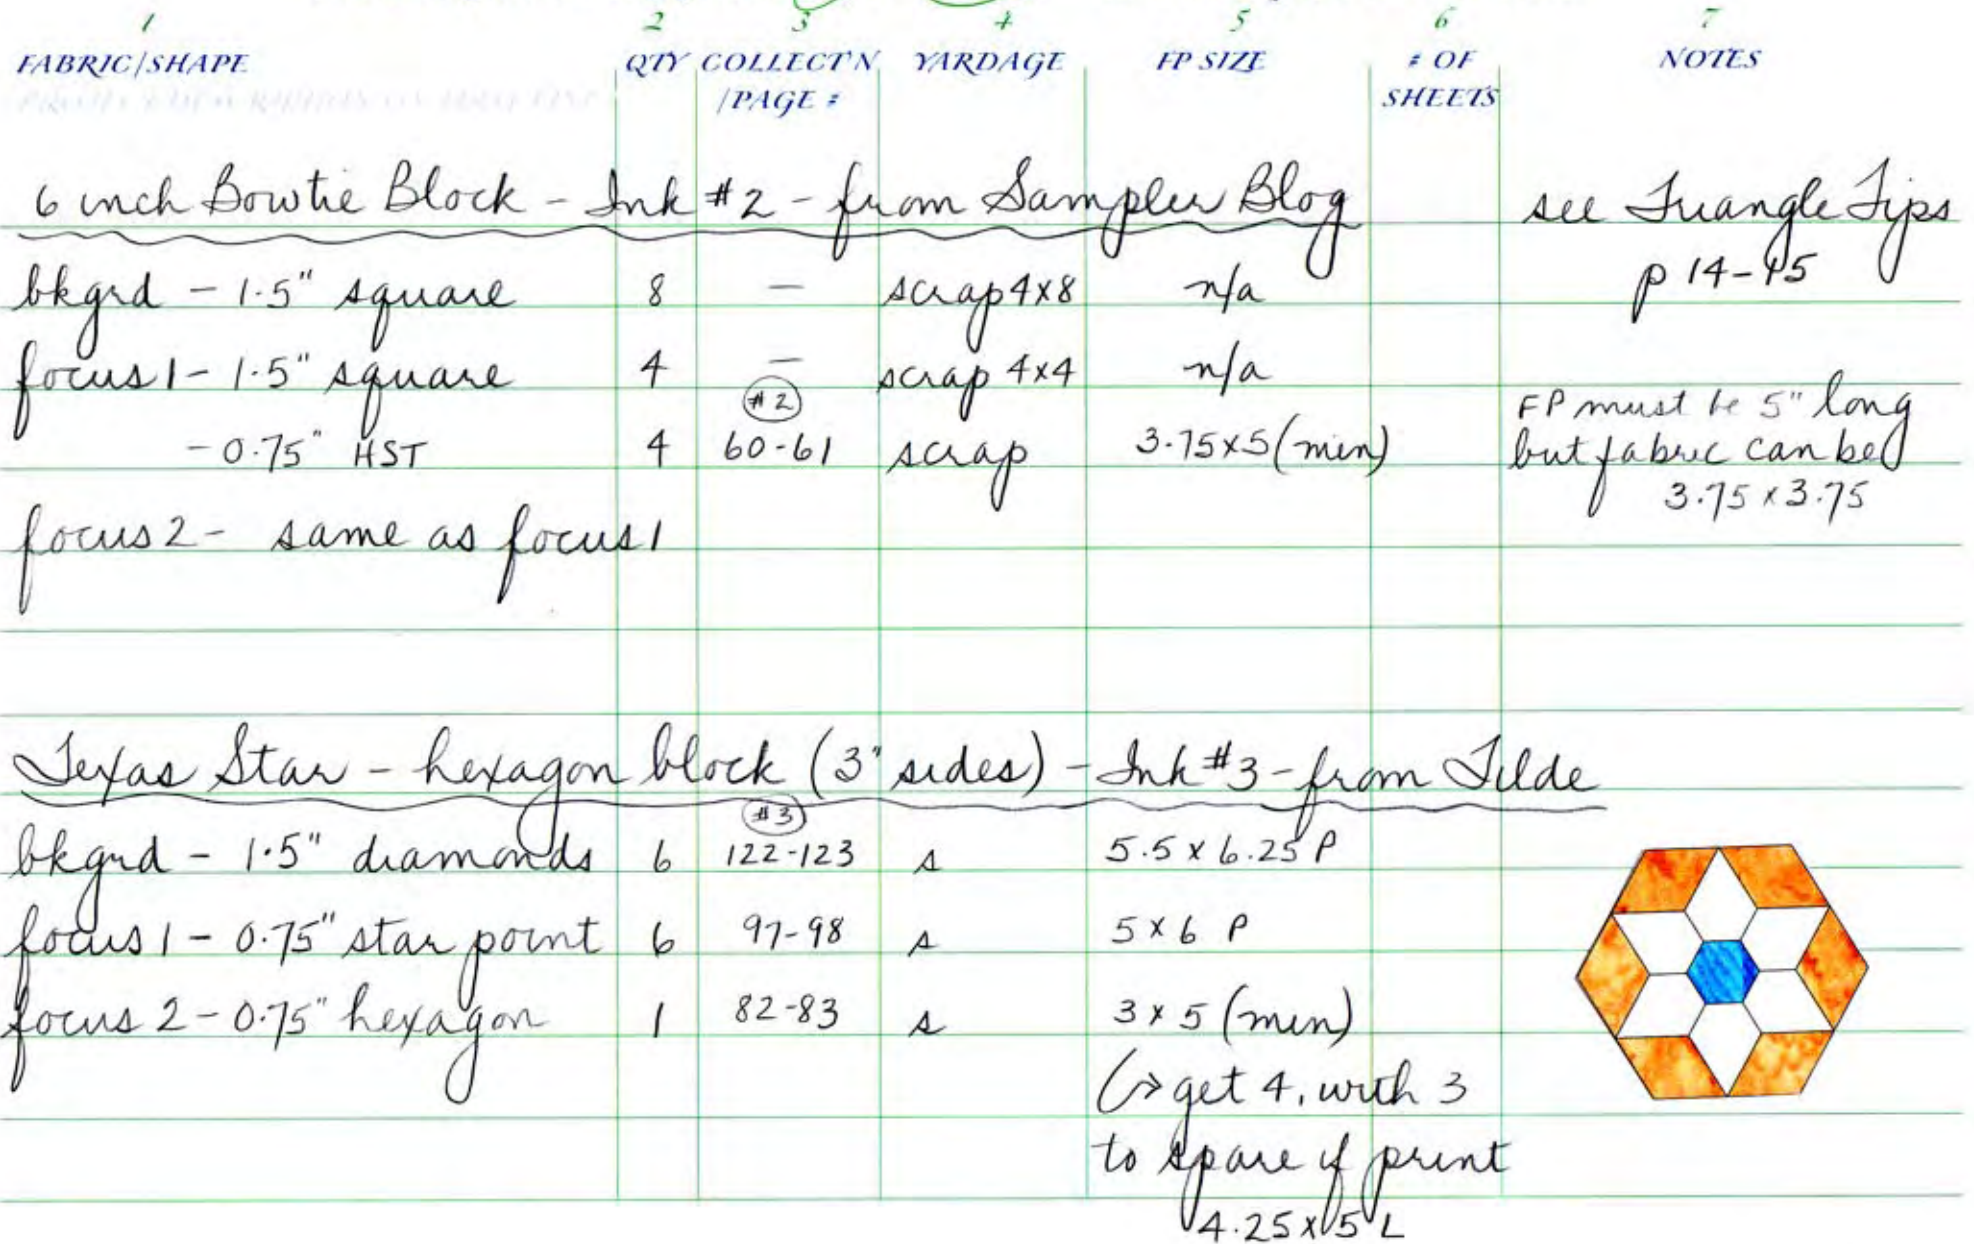 1 2 3 4 5 6 7
FABRIC/SHAPE QTY COLLECT'N /PAGE # YARDAGE FP SIZE # OF SHEETS NOTES
6 inch Bowtie Block - Ink #2 - from Sampler Blog see Triangle Tips
p 14-15
bkgrd - 1.5" square 8 — scrap 4x8 n/a
focus 1 - 1.5" square 4 — scrap 4x4 n/a
#2
- 0.75" HST 4 60-61 scrap 3.75x5 (min) FP must be 5" long
but fabric can be
3.75 x 3.75
focus 2 - same as focus 1
Texas Star - hexagon block (3" sides) - Ink #3 - from Tilde
#3
bkgrd - 1.5" diamonds 6 122-123 s 5.5 x 6.25 P
focus 1 - 0.75" star point 6 97-98 s 5 x 6 P
focus 2 - 0.75" hexagon 1 82-83 s 3 x 5 (min)
↳ get 4, with 3
to spare if print
4.25 x 5 L